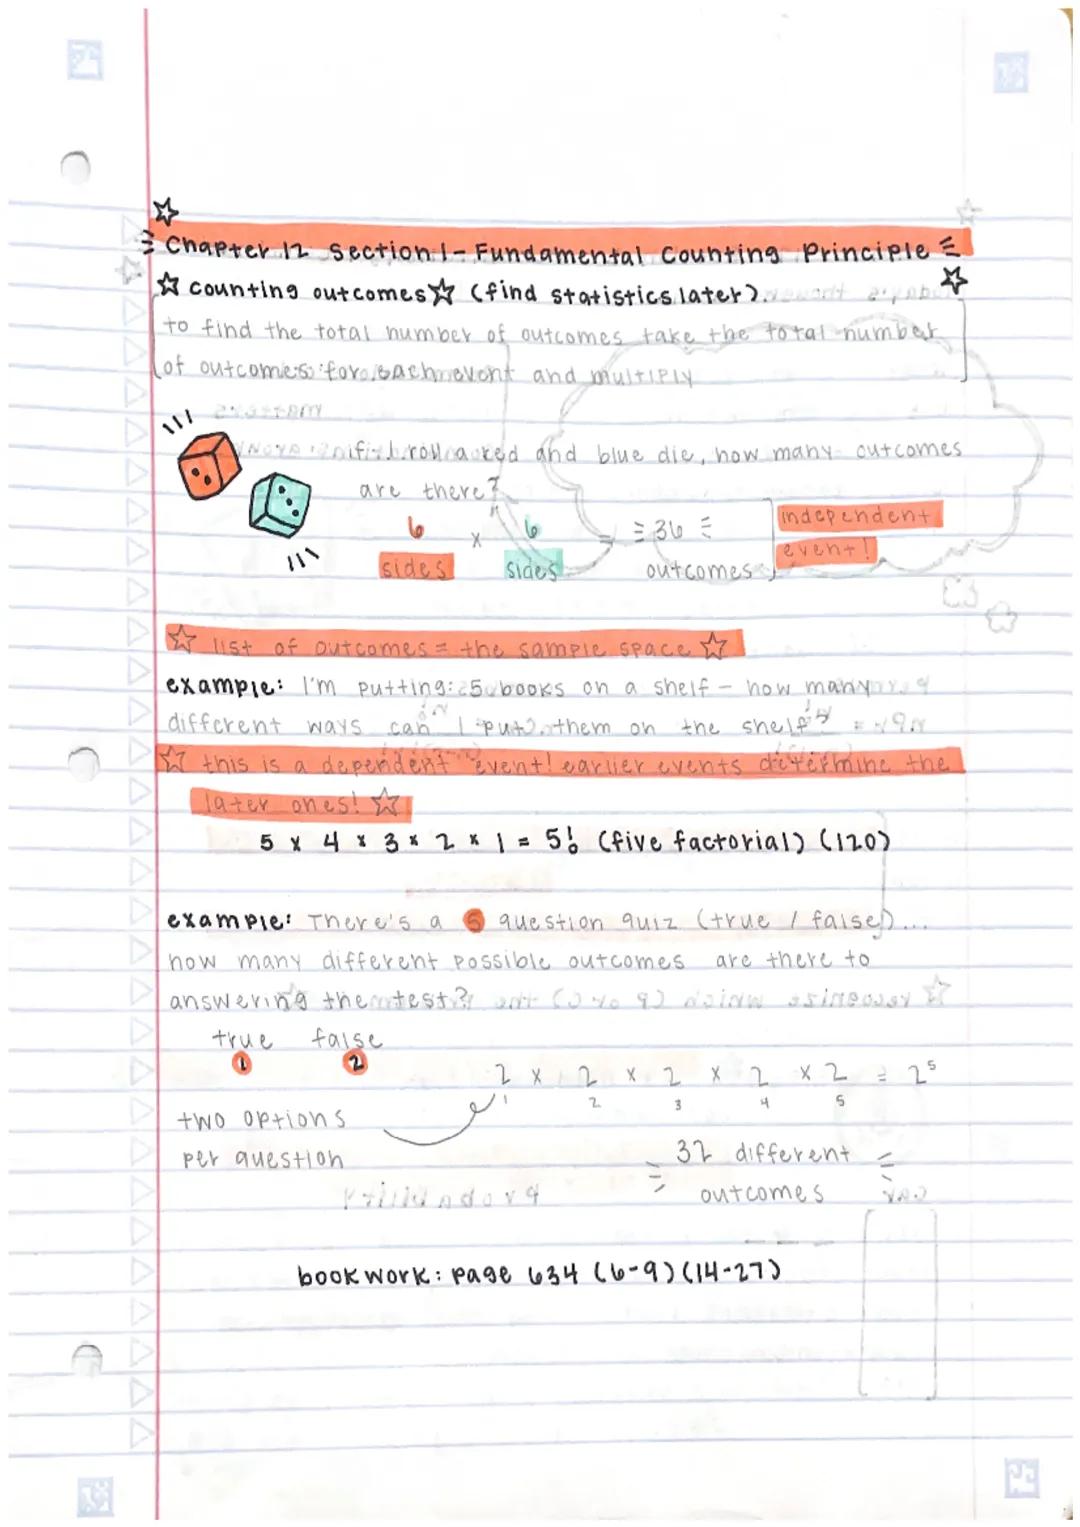 Chapter 12 Section 1 - Fundamental Counting Principle
☆ counting outcomes ☆ (find statistics later)
to find the total number of outcomes take the total number
of outcomes for each event and multiply
if I roll a red and blue die, how many outcomes
are there?
6 x 6 = 36
sides sides outcomes
independent
event!
☆ list of outcomes = the sample space ☆
example: I'm putting 5 books on a shelf - how many
different ways can I put them on the shelf?
☆ this is a dependent event! earlier events determine the
later ones! ☆
5 x 4 x 3 x 2 x 1 = 5! (five factorial) (120)
example: There's a 5 question quiz (true / false)...
how many different possible outcomes are there to
answering the test?
true false
1 2
2 x 2 x 2 x 2 x 2 = 2⁵
1 2 3 4 5
two options
per question
32 different
outcomes
bookwork: page 634 (6-9) (14-27)